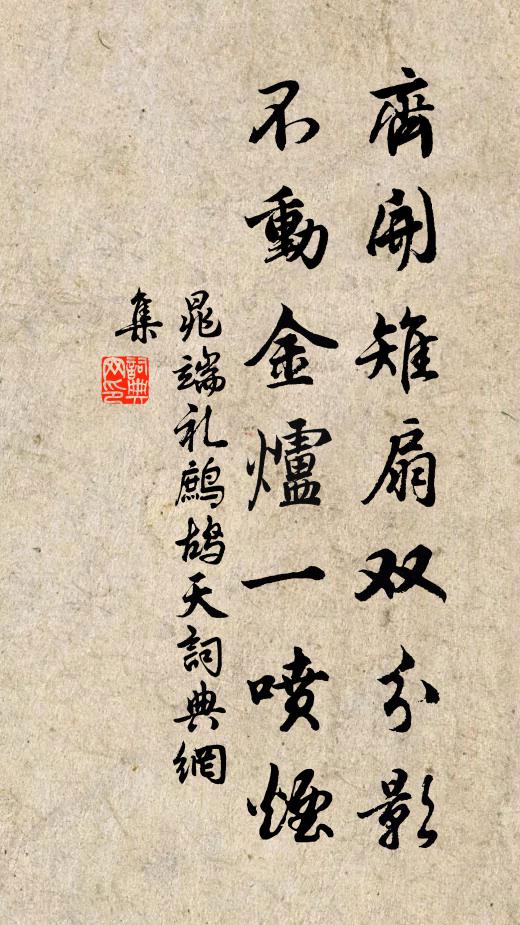 齊開雉扇双分影
不動金爐一噴煙
晁端礼鷓鴣天詞典網
集
詞典
网印